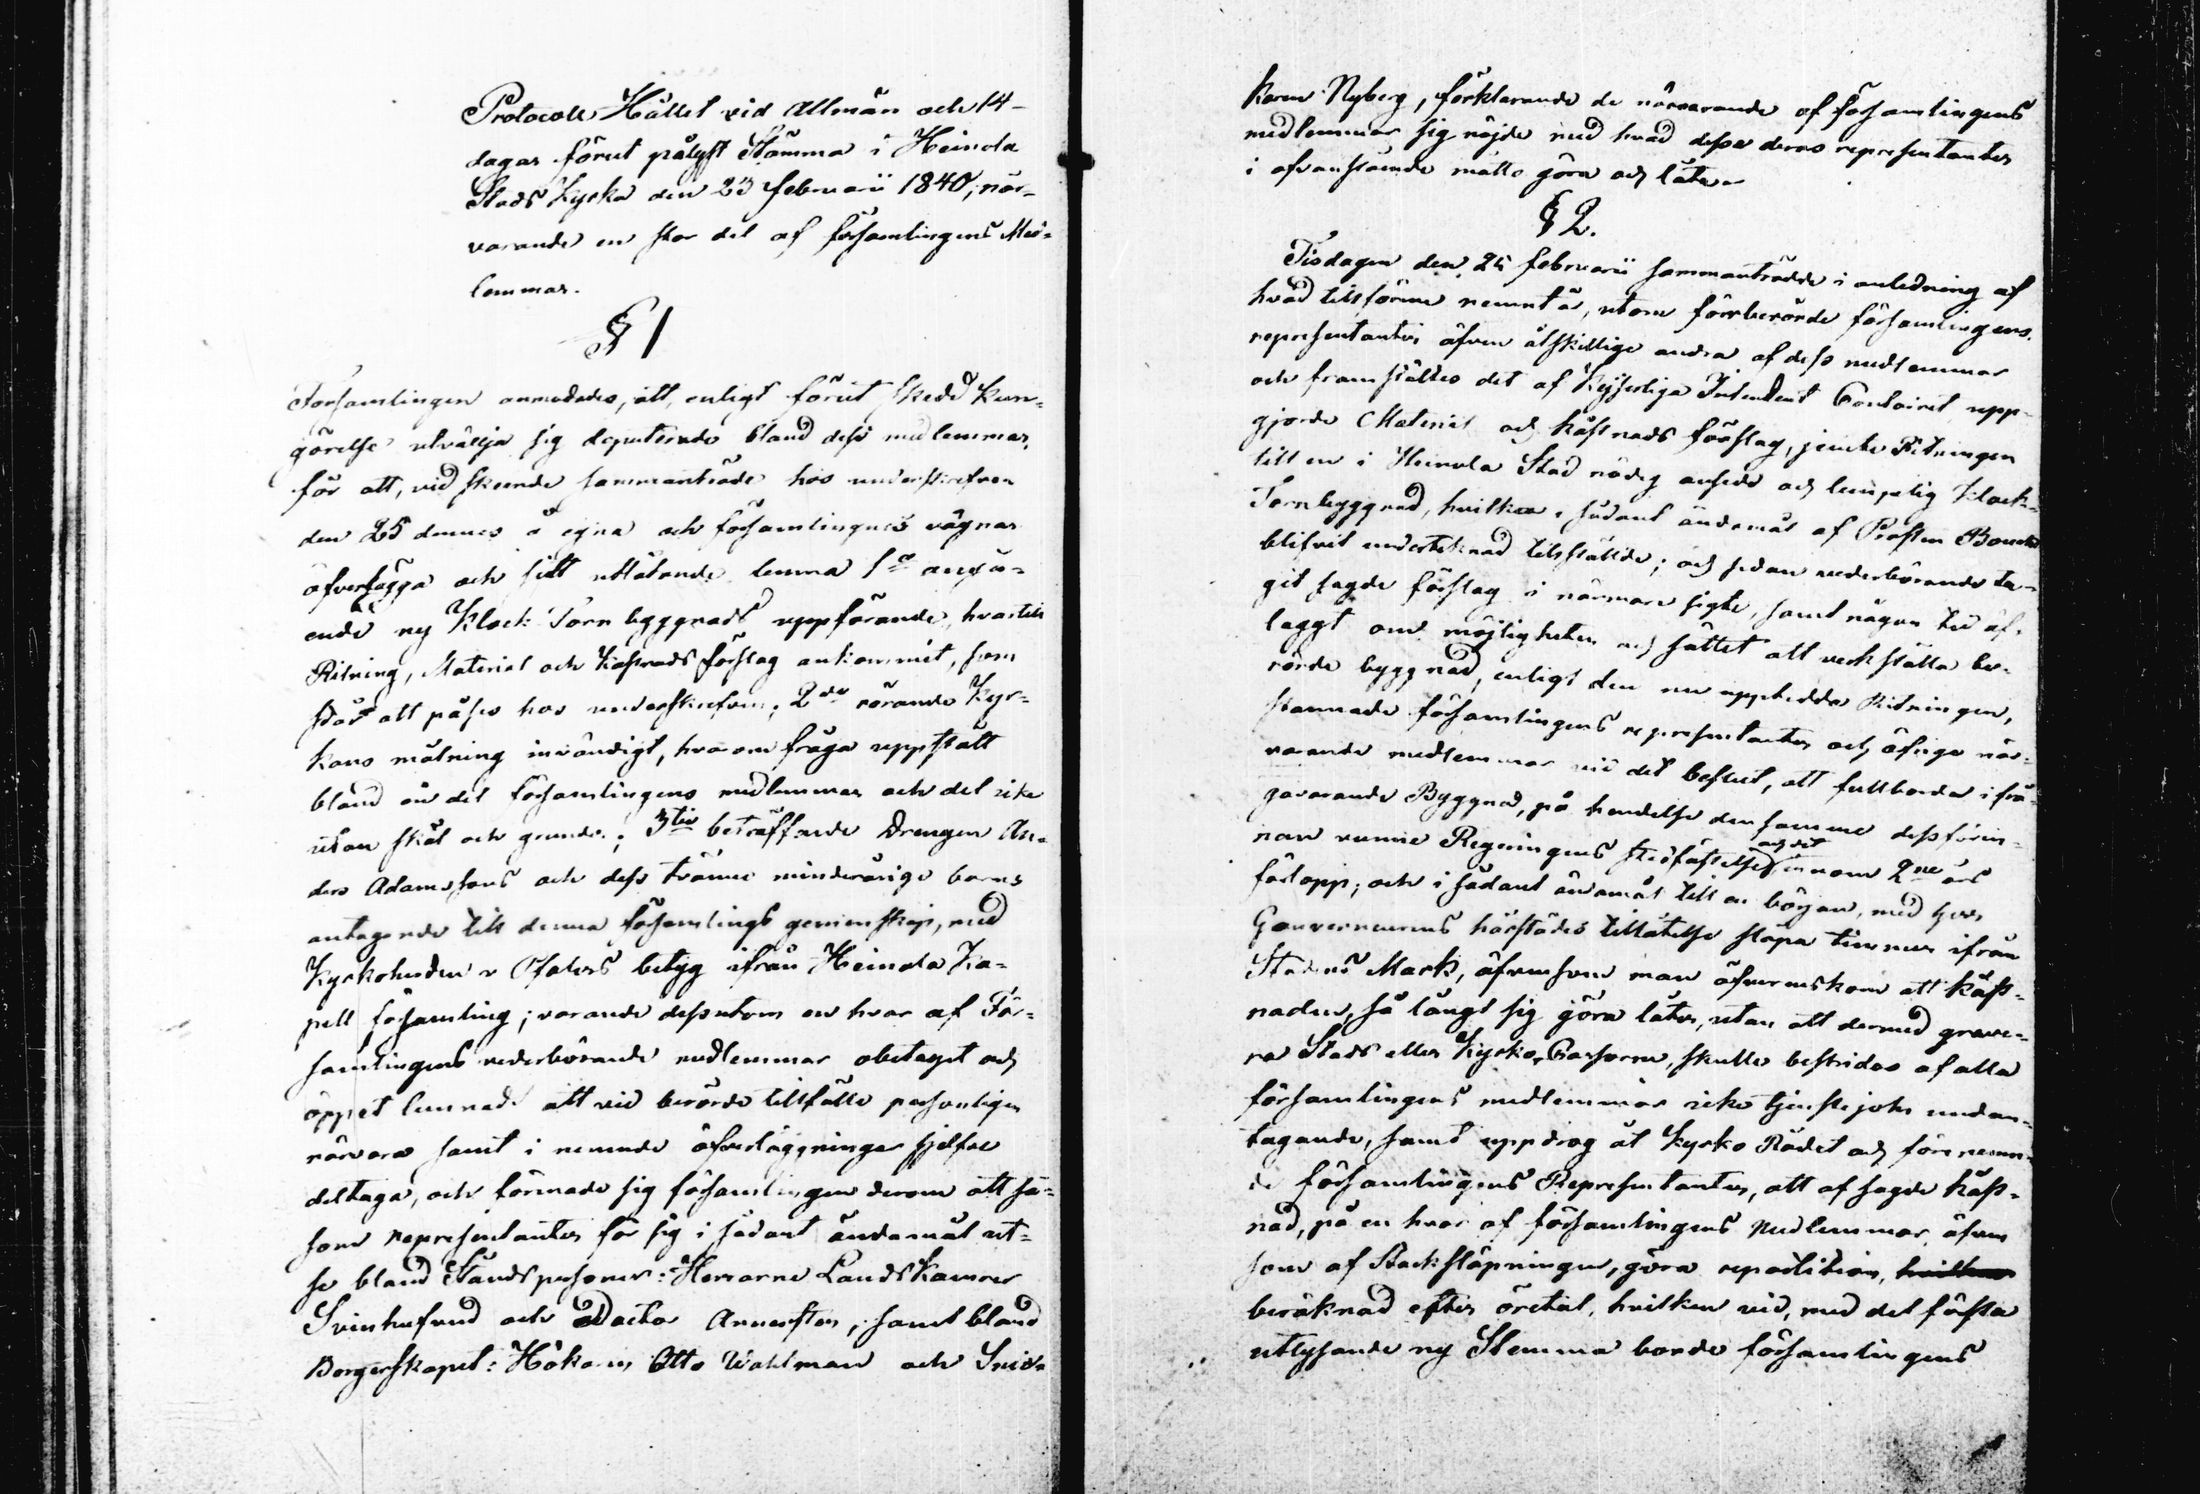 Protocoll Hållet vid Allmän och 14-
dagar förut pålyst Stämma i Heinola
Stads Kyrka den 23 februarii 1840, när-
varande en stor del af församlingens Med-
lemmar.
§ 1
Församlingen anmodades, att, enligt förut skedd kun-
görelse utvällja sig deputerade bland dess medlemmar,
för att, vid skeende sammanträde hos underskrefven
den 25 dennes å egna och församlingens vägnar
öfverlägga och sitt utlåtande lemna 1o angå-
ende ny Klock Torn byggnads uppförande, hvartill
Ritning, Material och Kåstnads förslag ankommit, som
står att påses hos underskrefven; 2do rörande Kyr-
kans målning invändigt, hvarom fråga uppstått
bland en del församlingens medlemmar och det icke
utan skäl och grunder; 3tio beträffande Drengen An-
ders Adamssons och dess tvänne minderåriga barns
antagande till denna församlings gemenskap, med
Kyrkoherden Ofalers betyg ifrån Heinola Ka-
pell församling; varande dessutom en hvar af För-
samlingens vederbörande medlemmar obetaget och
öppet lemnadt att vid berörde tillfälle personligen
närvara samt i nemnde öfverläggningar sjelfve
deltaga, och förenade sig församlingen derom att så-
som representanter för sig i sådant ändamål ut-
se bland Ståndspersoner: Herrarne LandsKamrer
Svinhufvud och Doctor Annersten, samt bland
Borgerskapet: Hökaren Otto Wahlman och Snic-
karen Nyberg, förklarande de närvarande af församlingens
medlemmar sig nöjde med hvad desse deras representanter
i ofvanstående måtto göra och låta.
§ 2.
Tisdagen den 25 februarii sammanträdde i anledning af
hvad tillförene nemnt är, utom förrberörde församlingens
representanter äfven åtskillige andra af dess medlemmar
och framställtes det af Kejserliga Intendent Contoiret upp-
gjorde Material och kåstnads förslag, jemte Ritningen
till en i Heinola Stad nödig ansedd och lempelig Klock-
Tornbyggnad, hvilken i sådant ändamål af Prosten
blifvit undertecknad tillställde; och sedan vederbörande ta-
git sagde förslag i närmare sigte, samt någon tid öf-
laggt om möjligheten och sättet att verkställa be-
rörde byggnad, enligt den nu uppteedda Ritningen,
stannade församlingens representanter och öfrige när-
varande medlemmar vid det beslut, att fullborda ifrå-
gavarande Byggnad, på hendelse densamme dessförin-
nan vunne Regeringens stadfästelse och det innom 2ne års
förlopp; och i sådant ändamål till en början, med Herr
Gouverneurens härstädes tillåtelse släpa timmer ifrån
Stadens Mark, äfvensom man öfverenskom att kåst-
naden, så långt sig göra låter, utan att dermed grave-
ra Stads eller Kyrko Cassorne, skulle bestridas af alla
församlingens medlemmar icke tjenstejohn undan-
tagande, samt uppdrog åt Kyrko Rådet och förenemn-
de församlingens Representanter, att af sagde kåst-
nad, på en hvar af församlingens Medlemmar äfven
som af Stocksläpningen, göra repartition,
beräknad efter öretal, hvilken vid, med det första
utlysande ny Stemma borde församlingens